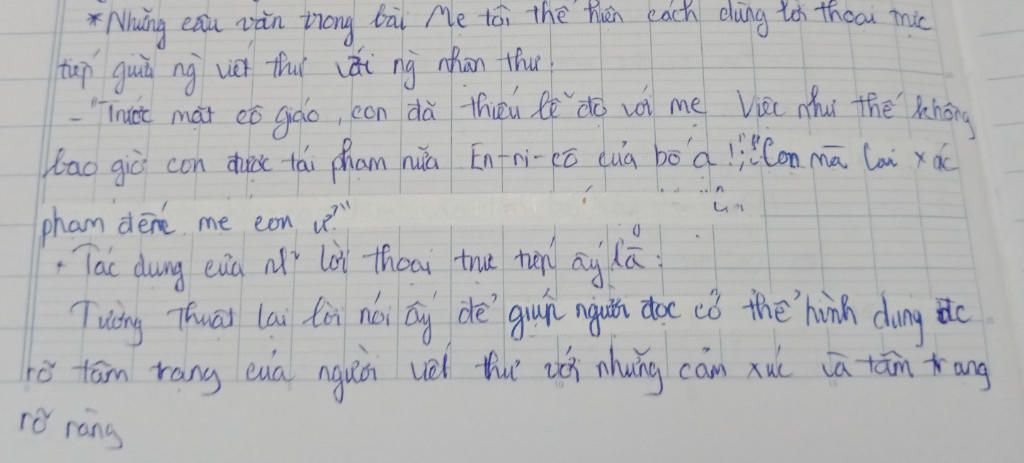 * Những câu văn trong bài Mẹ tôi thể hiện cách dùng lời thoại trực
tiếp giữa ng viết thư với ng nhận thư.
- "Trước mặt cô giáo, con đã thiếu lễ độ với mẹ Việc như thế không
bao giờ con được tái phạm nữa En-ri-cô của bố ạ!"; "Con mà lại xúc
phạm đến mẹ con ư?"
+ Tác dụng của lời thoại trực tiếp ấy là:
Tường thuật lại lời nói ấy để giúp người đọc có thể hình dung đc
rõ tâm trạng của người viết thư với những cảm xúc và tâm trạng
rõ ràng